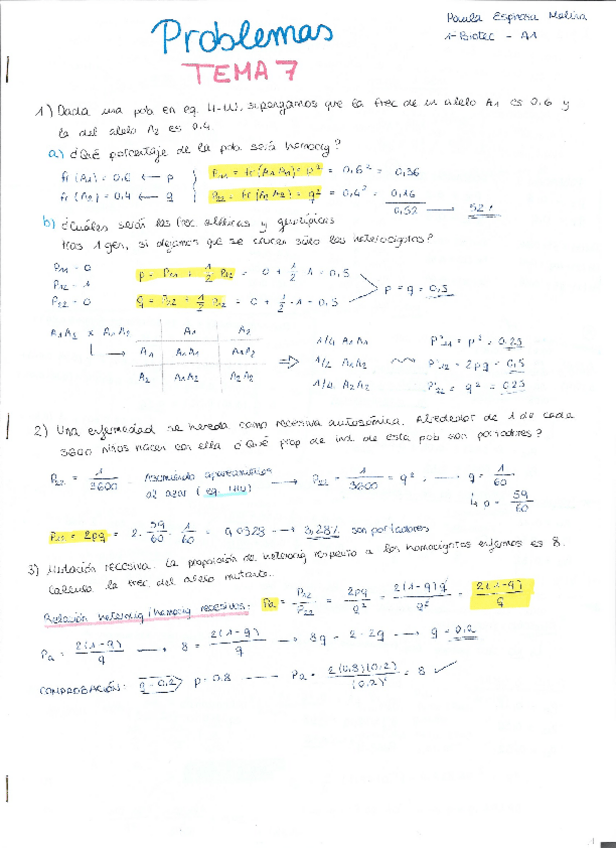 Problemas
TEMA 7
Paula Espinosa Molina
1º Biotec - A1
1) Dada una pob en eq. H-W, supongamos que la frec de un alelo A1 es 0.6 y
la del alelo A2 es 0.4
a) ¿Qué porcentaje de la pob será homocig?
fr(A1) = 0.6 ← p } P11 = fr(A1A1) = p² = 0,6² = 0,36
fr(A2) = 0.4 ← q } P22 = fr(A2A2) = q² = 0,4² = 0,16
0,52 → 52%
b) ¿Cuáles serán las frec alélicas y genotípicas
tras 1 gen, si dejamos que se crucen sólo los heterocigotos?
P11 = 0
P12 = 1
P22 = 0
p = P11 + 1/2 P12 = 0 + 1/2 · 1 = 0,5
q = P22 + 1/2 P12 = 0 + 1/2 · 1 = 0,5
p = q = 0,5
A1A2 x A1A2 →
A1 A2
A1 A1A1 A1A2
A2 A1A2 A2A2
⇒
1/4 A1A1 P'11 = p² = 0.25
1/2 A1A2 P'12 = 2pq = 0,5
1/4 A2A2 P'22 = q² = 0.25
2) Una enfermedad se hereda como recesiva autosómica. Alrededor de 1 de cada
3600 niños nacen con ella ¿Qué prop de ind. de esta pob son portadores?
P22 = 1/3600 Asumiendo apareamientos al azar (eq. HW) → P22 = 1/3600 = q² → q = 1/60
p = 59/60
P12 = 2pq = 2 · 59/60 · 1/60 = 0,0328 → 3,28% son portadores
3) Mutación recesiva. La proporción de heterocig respecto a los homocigotos enfermos es 8.
Calcula la frec. del alelo mutante.
Relación heterocig/homocig recesivos: Pa = P12/P22 = 2pq/q² = 2(1-q)q/q² = 2(1-q)/q
Pa = 2(1-q)/q → 8 = 2(1-q)/q → 8q = 2-2q → q = 0,2
COMPROBACIÓN: q = 0.2 p = 0.8 → Pa = 2(0.8)(0.2)/(0.2)² = 8 ✓